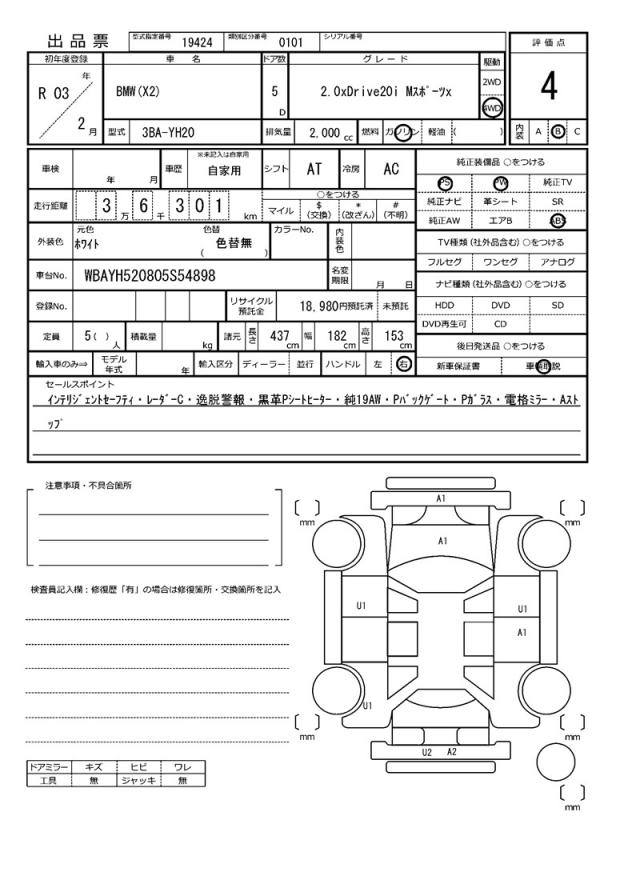 出 品 票 型式指定番号 19424 類別区分番号 0101 シリアル番号
初年度登録 車 名 ドア数 グレード 駆動 評 価 点
R 03 年 2 月 BMW(X2) 5 D 2.0xDrive20i Mｽﾎﾟｰﾂx 2WD 4WD 4
型式 3BA-YH20 排気量 2,000 cc 燃料 ガソリン 軽油 ( ) 内装 A B C
車検 年 月 車歴 ※未記入は自家用 自家用 シフト AT 冷房 AC
走行距離 3 万 6 千 3 0 1 km ○をつける
マイル $ (交換) * (改ざん) # (不明)
外装色 元色 ﾎﾜｲﾄ 色替 色替無 ( ) カラーNo. 内装色
車台No. WBAYH520805S54898 名変期限 月 日
登録No. リサイクル預託金 18,980円預託済 未預託
定員 5( ) 人 積載量 kg 諸元 長さ 437 cm 幅 182 cm 高さ 153 cm
輸入車のみ⇒ モデル年式 年 輸入区分 ディーラー 並行 ハンドル 左 右
純正装備品 ○をつける
PS PW 純正TV
純正ナビ 革シート SR
純正AW エアB ABS
TV種類 (社外品含む) ○をつける
フルセグ ワンセグ アナログ
ナビ種類 (社外品含む) ○をつける
HDD DVD SD
DVD再生可 CD
後日発送品 ○をつける
新車保証書
セールスポイント
ｲﾝﾃﾘｼﾞｪﾝﾄｾｰﾌﾃｨ・ﾚｰﾀﾞｰC・逸脱警報・黒革Pｼｰﾄﾋｰﾀｰ・純19AW・Pﾊﾞｯｸｹﾞｰﾄ・Pｶﾞﾗｽ・電格ﾐﾗｰ・Aｽﾄ
ｯﾌﾟ
注意事項・不具合箇所
検査員記入欄：修復歴「有」の場合は修復箇所・交換箇所を記入
ドアミラー キズ ヒビ ワレ
工具 無 ジャッキ 無
A1
mm mm
A1
U1 U1
A1
U1
mm mm
U2 A2
mm